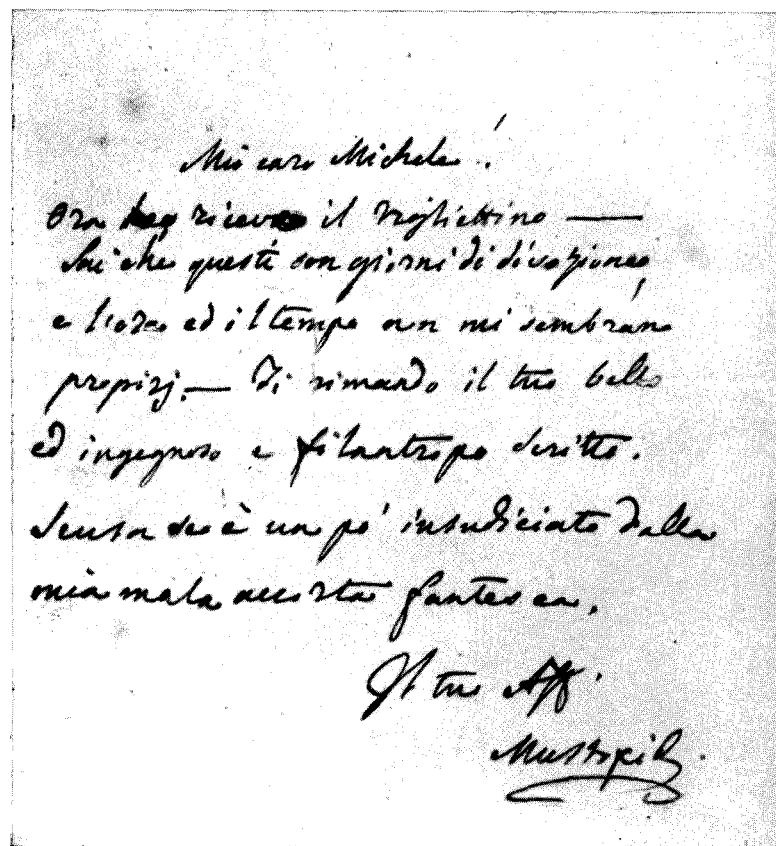 Mio caro Michele!
Ora ricevo il vigliettino —
Sai che questi son giorni di divozione,
e l'ora ed il tempo non mi sembrano
propizj. — Ti rimando il tuo bello
ed ingegnoso e filantropo scritto.
Scusa se è un po' insudiciato dalla
mia mala accorta fantesca.
Il tuo Aff.
Mustoxidi.